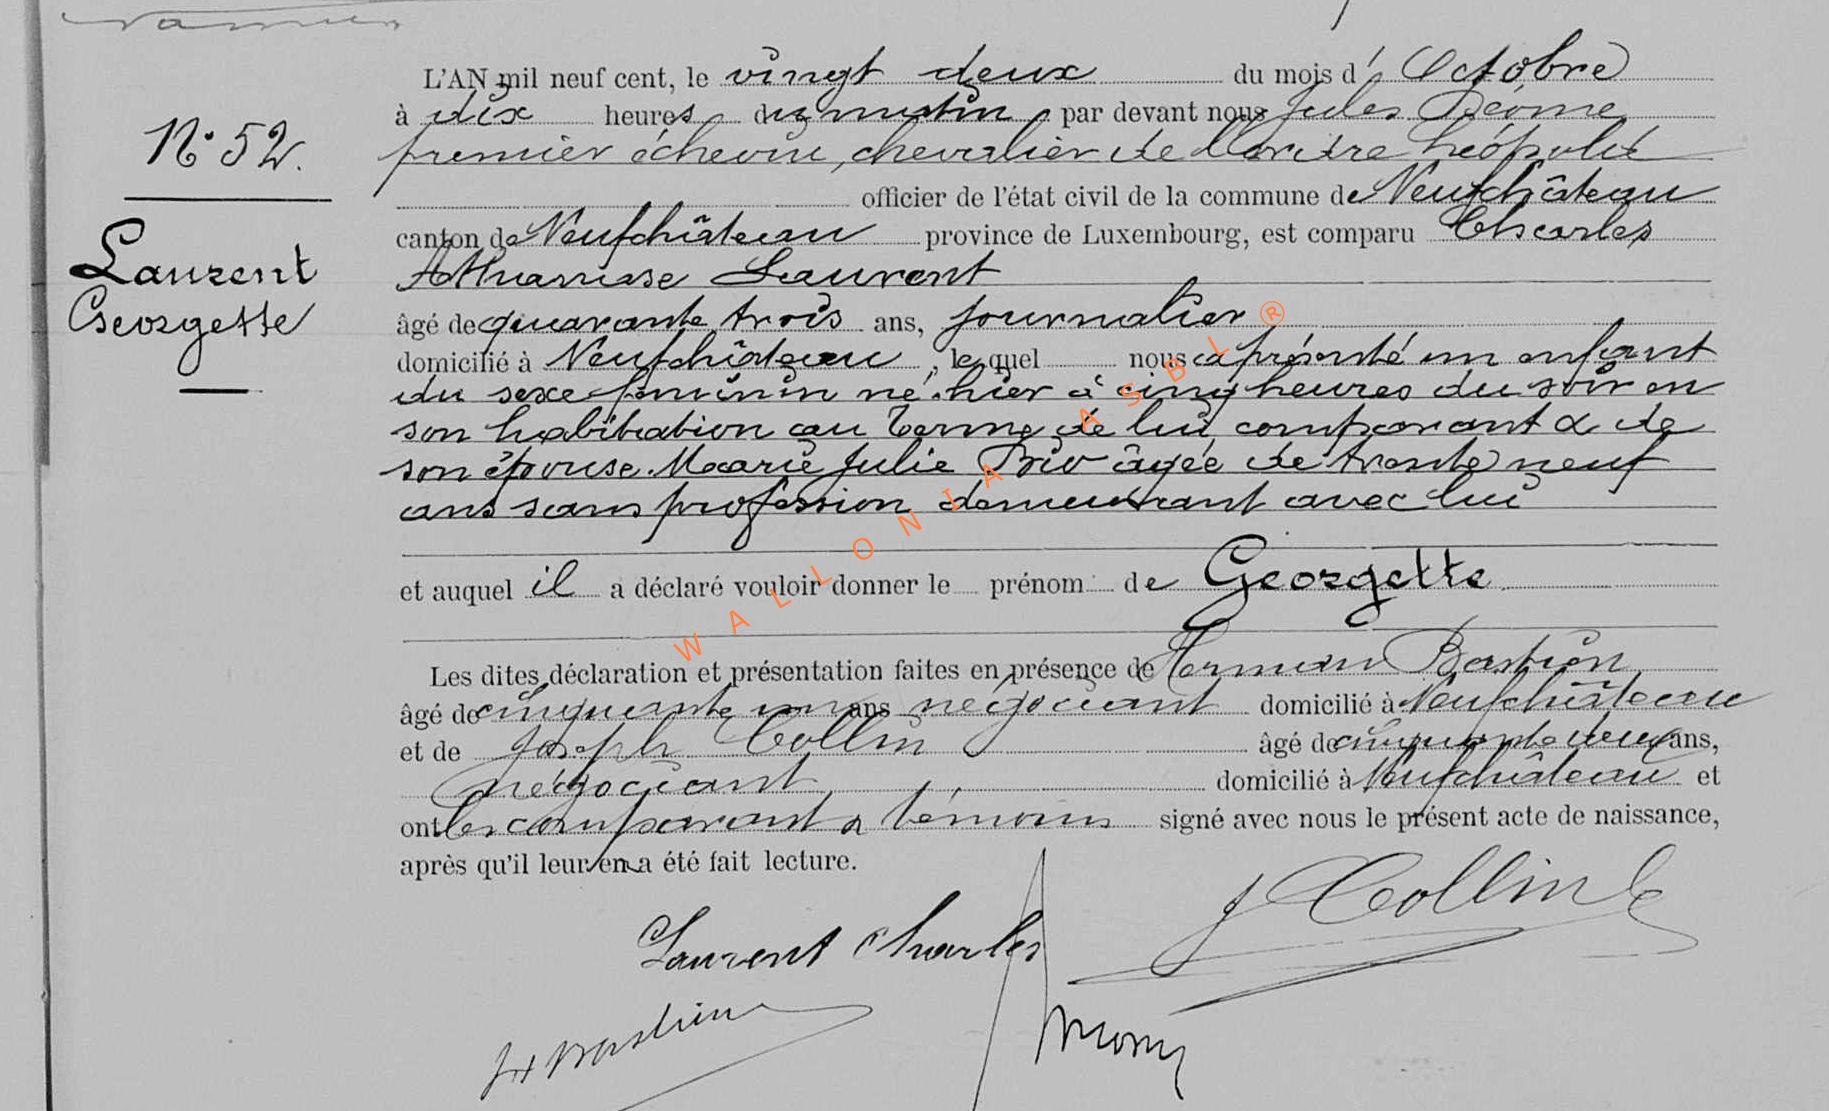 N° 52.
Laurent
Georgette
L'AN mil neuf cent, le vingt deux du mois d' Octobre
à dix heures du matin, par devant nous Jules
premier échevin, chevalier de l'ordre Léopold
officier de l'état civil de la commune de Neufchâteau
canton de Neufchâteau province de Luxembourg, est comparu Charles
Athanase Laurent
âgé de quarante trois ans, journalier
domicilié à Neufchâteau, lequel nous a présenté un enfant
du sexe féminin né hier à cinq heures du soir en
son habitation au Terme de lui comparant & de
son épouse Marie Julie âgée de trente neuf
ans sans profession demeurant avec lui
et auquel il a déclaré vouloir donner le prénom de Georgette
Les dites déclaration et présentation faites en présence de Herman Bastien
âgé de cinquante un ans négociant domicilié à Neufchâteau
et de Joseph Collin âgé de cinquante deux ans,
négociant domicilié à Neufchâteau et
ont les comparant & témoins signé avec nous le présent acte de naissance,
après qu'il leur en a été fait lecture.
J Collin
Laurent Charles
H Bastien
WALLONIA ASBL ®